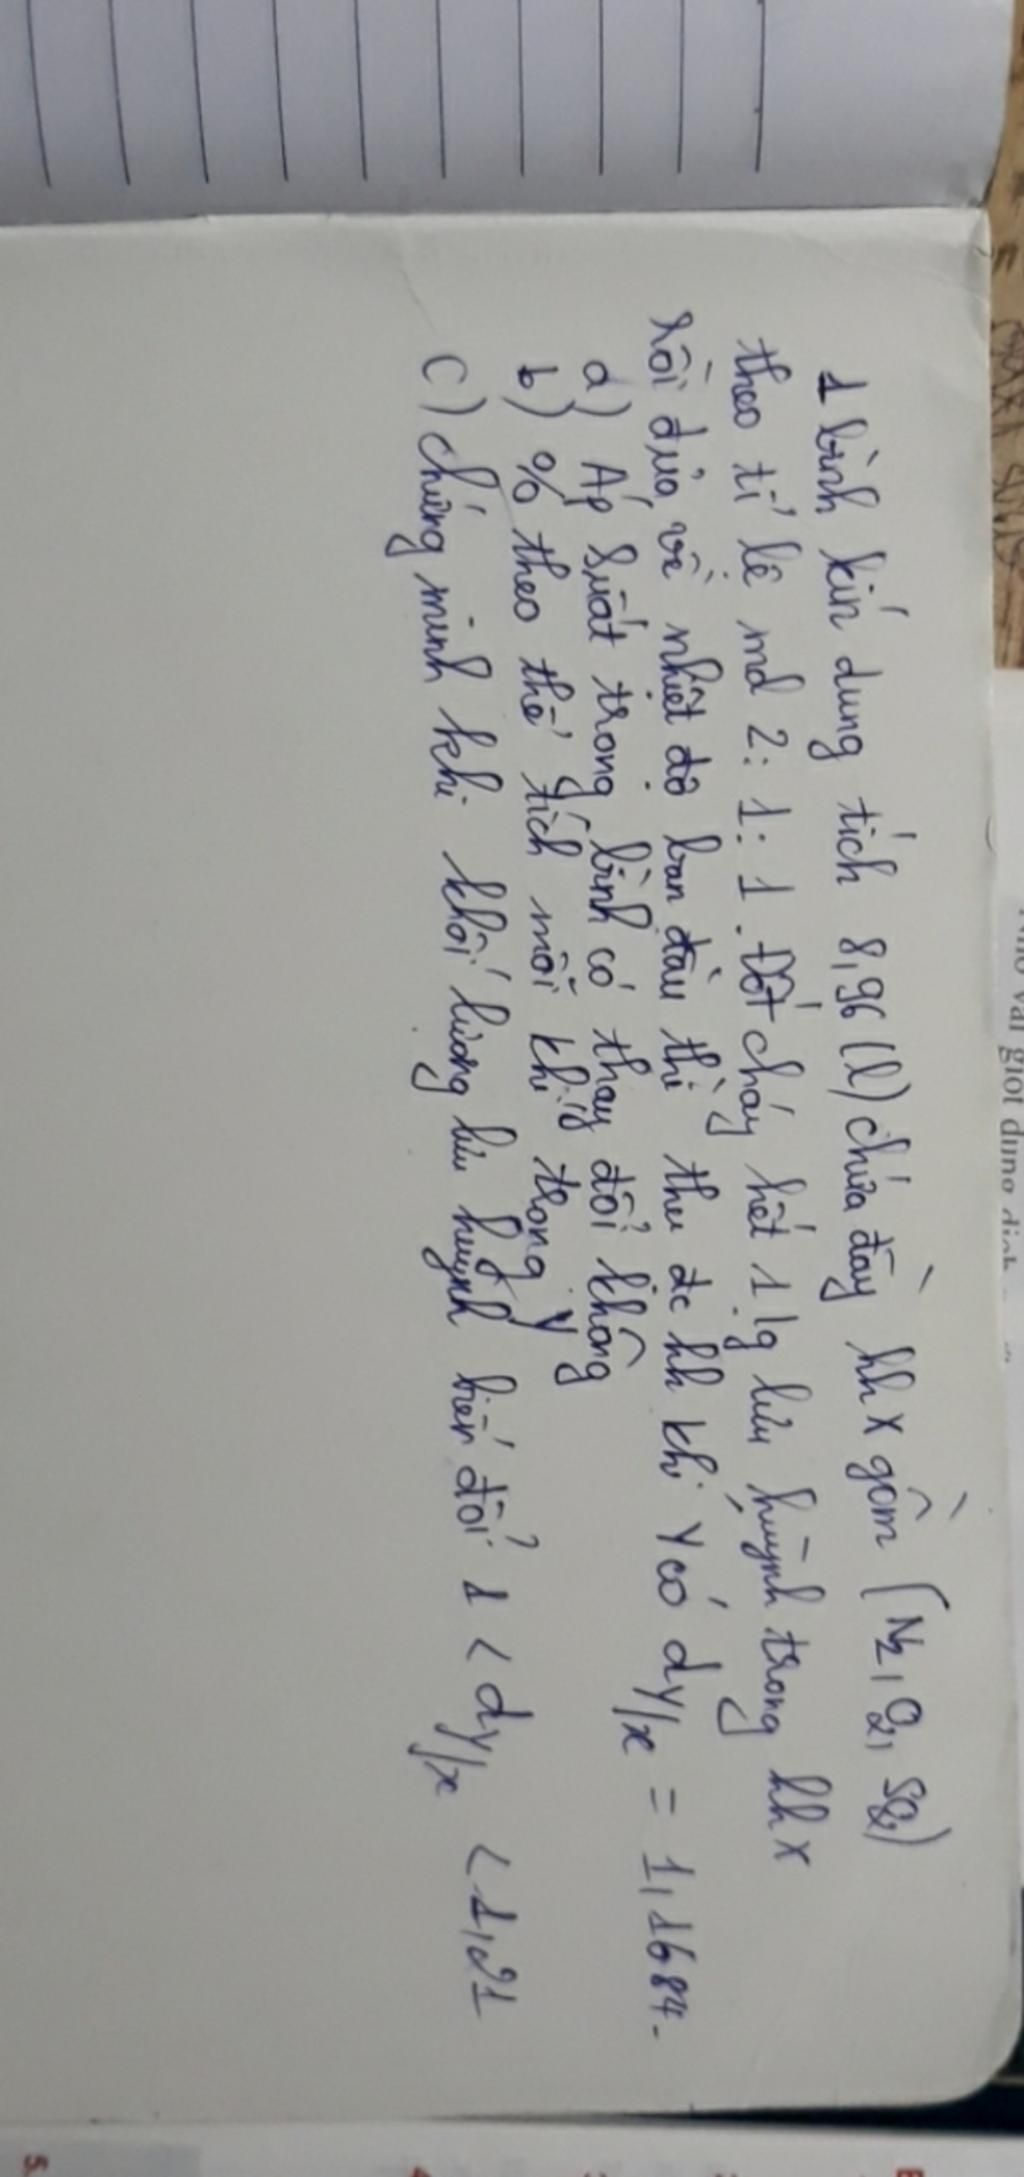 1 bình kín dung tích 8,96 (l) chứa đầy hh x gồm (N2, O2, SO2)
theo tỉ lệ mol 2:1:1. Đốt cháy hết 1 lg lưu huỳnh trong hh x
rồi đưa về nhiệt độ ban đầu thì thu đc hh khí Y có dY/x = 1,1684.
a) Áp suất trong bình có thay đổi không
b) % theo thể tích mỗi khí trong Y
c) chứng minh khi khối lượng lưu huỳnh biến đổi 1 < dY/x < 1,21
giọt dung
5.